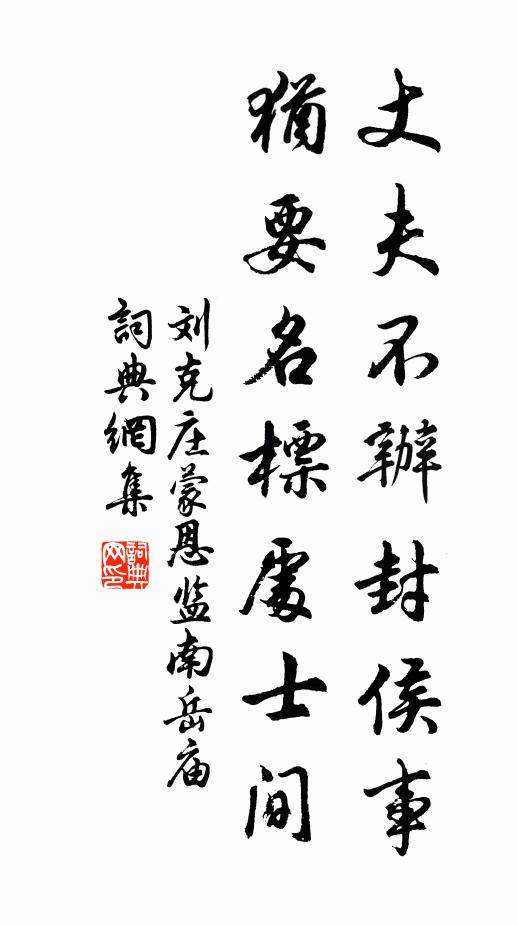 丈夫不辦封侯事
猶要名標處士间
刘克庄蒙恩监南岳庙
詞典網集
詞典
网印